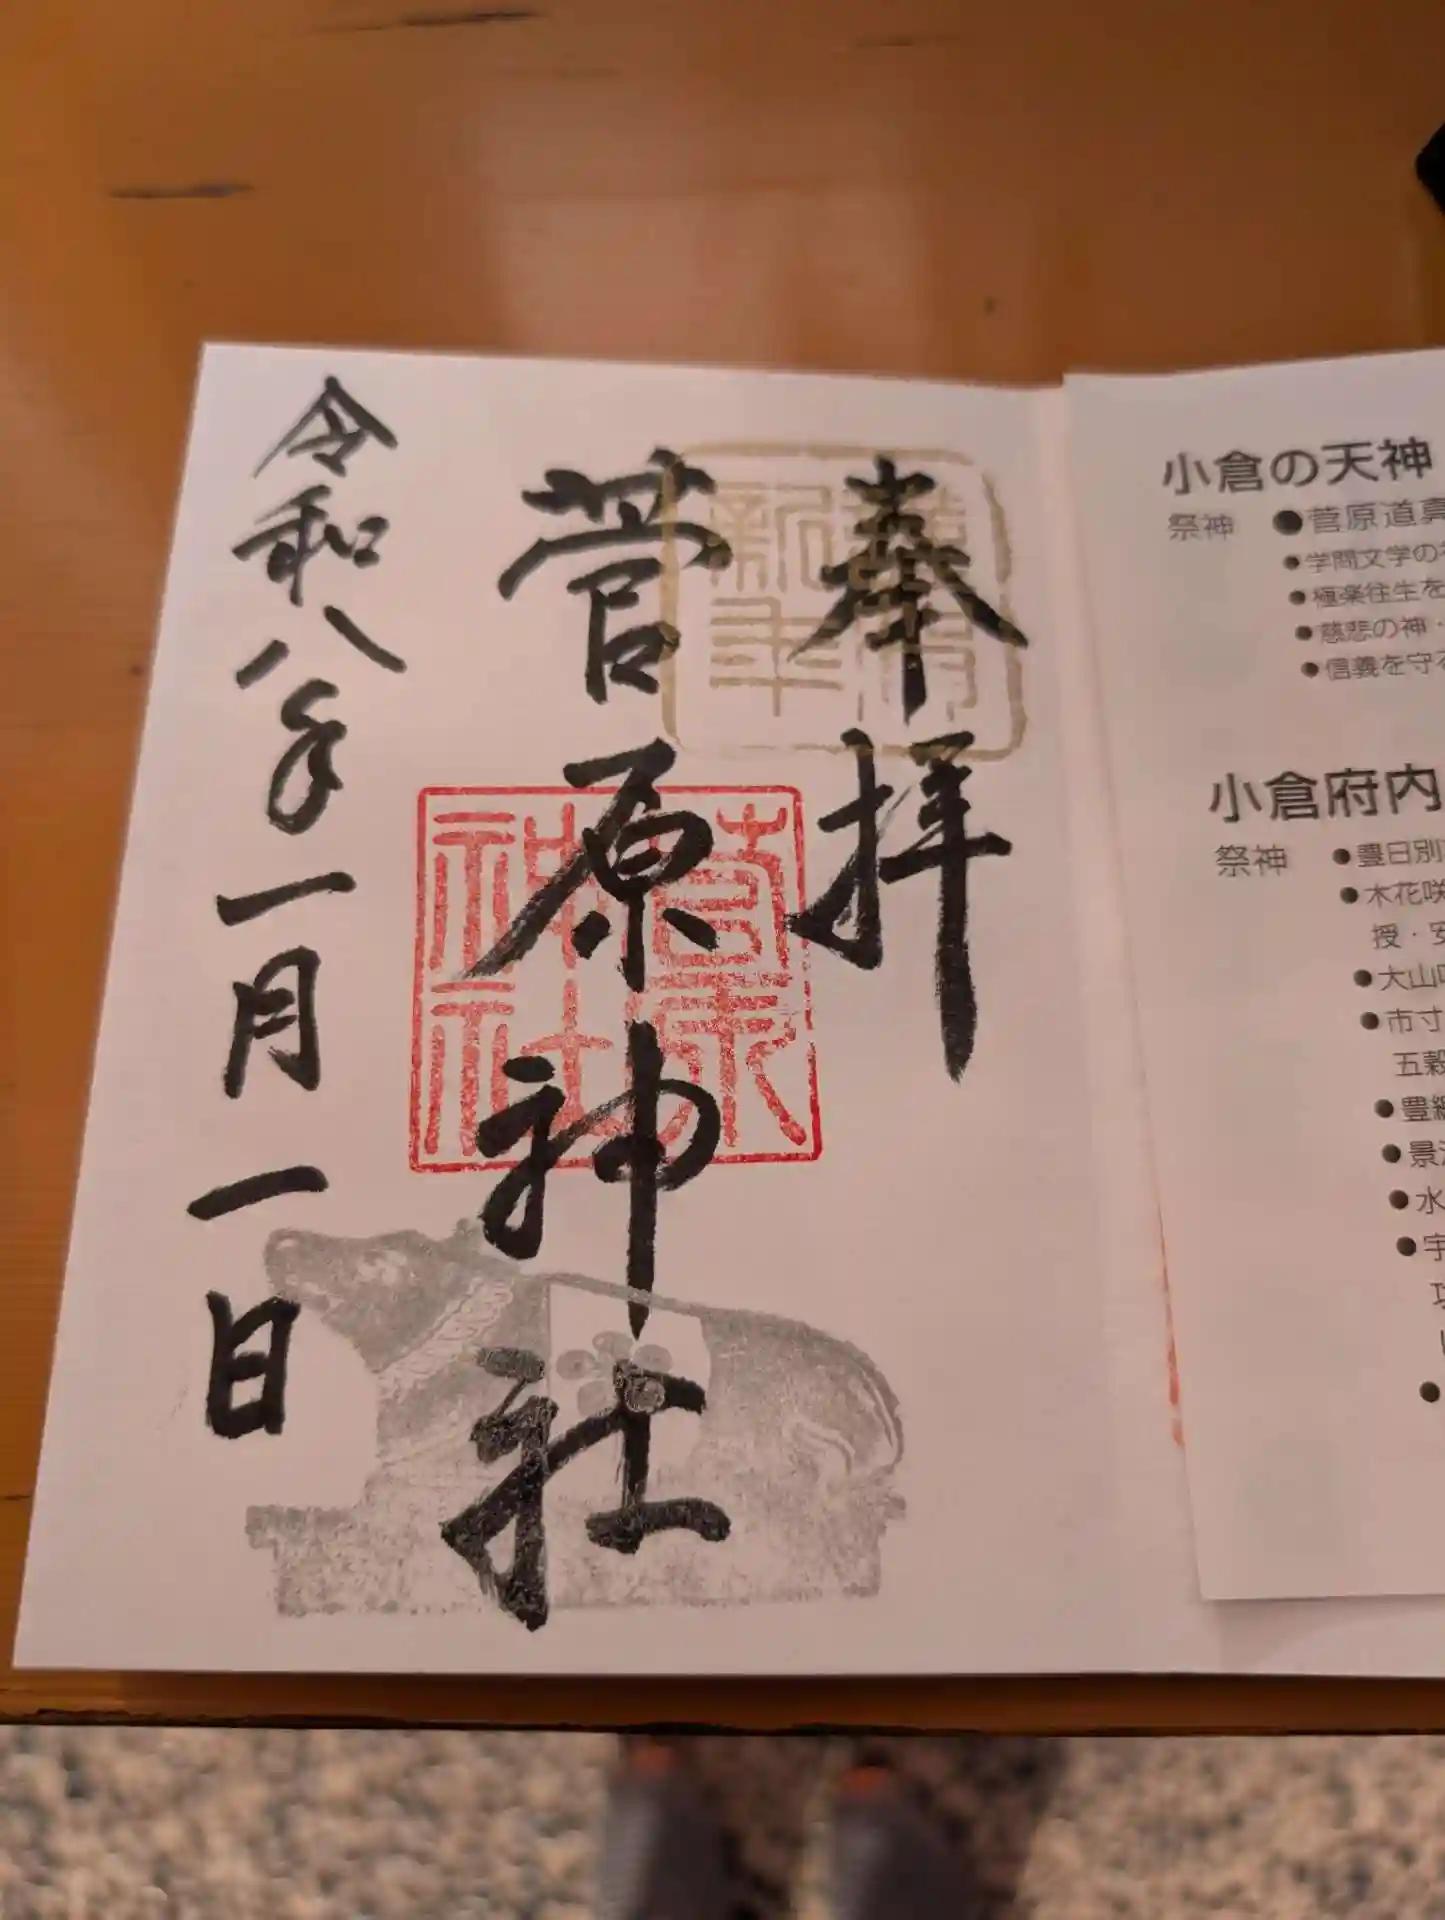 奉拝
菅原神社
令和八年一月一日
謹賀
新年
菅原
神社
小倉の天神
祭神 ●菅原道真
●学問文学の
●極楽往生を
●慈悲の神・
●信義を守る
小倉府内
祭神 ●豊日別
●木花咲
授・安
●大山
●市寸
五穀
●豊
●景
●水
●宇